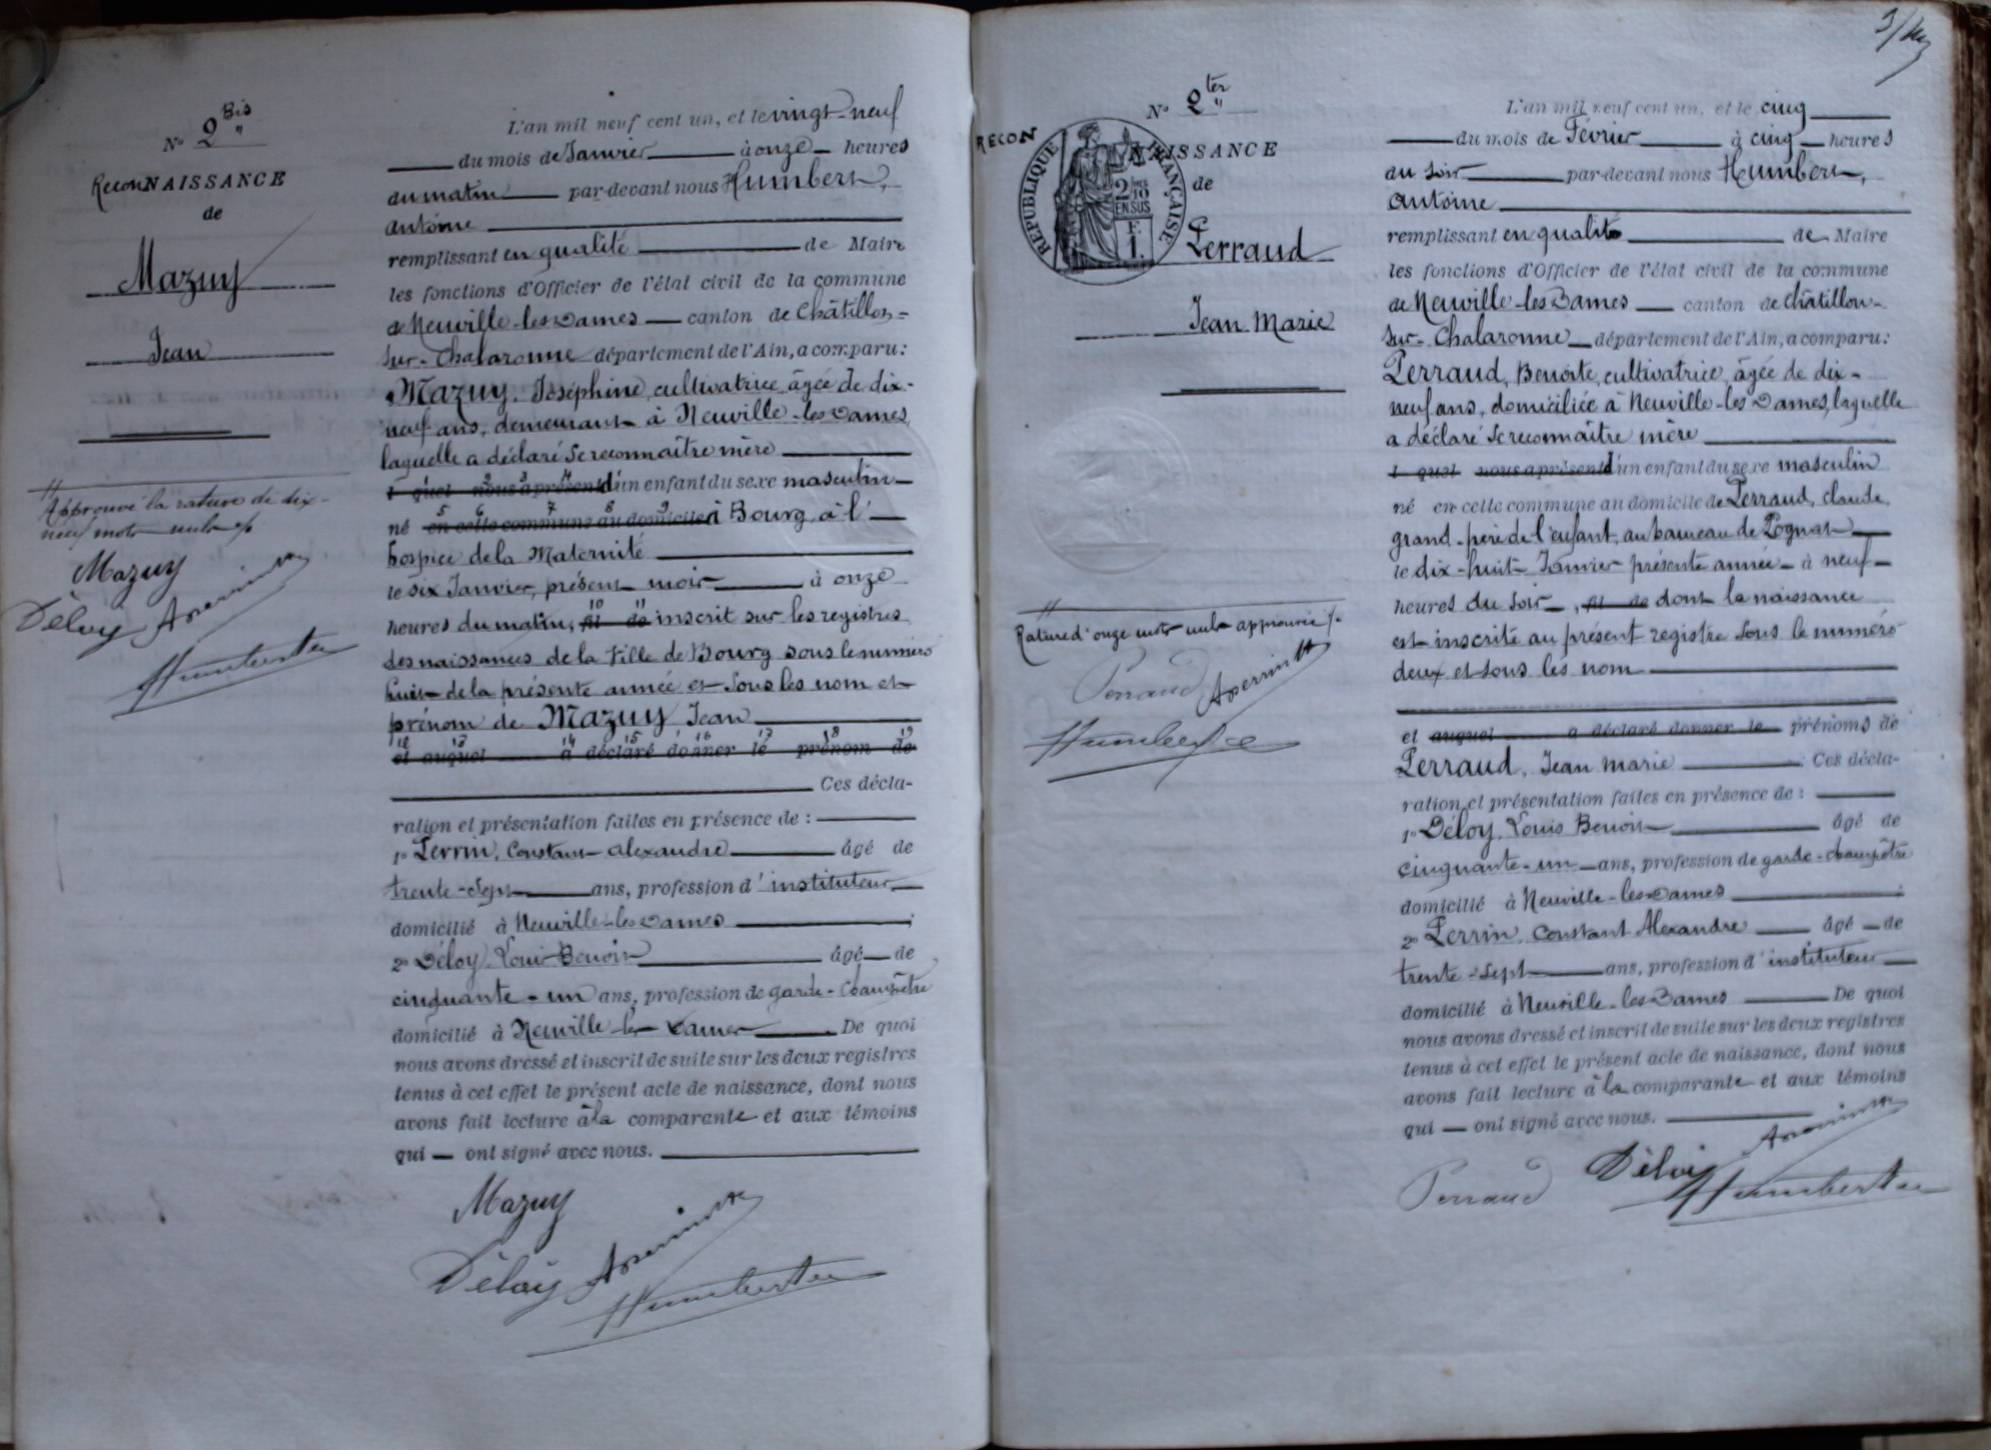 N° 2 Bis "
ReconNAISSANCE
de
Mazuy
Jean
Approuvé la rature de dix-
neuf mots nuls
Mazuy
Déloy APerrin
Humbert
L'an mil neuf cent un, et le vingt-neuf
du mois de Janvier à onze heures
du matin par-devant nous Humbert,
Antoine
remplissant en qualité de Maire
les fonctions d'Officier de l'état civil de la commune
de Neuville-les-Dames canton de Châtillon-
sur-Chalaronne département de l'Ain, a comparu:
Mazuy, Joséphine, cultivatrice, âgée de dix-
neuf ans, demeurant à Neuville-les-Dames,
laquelle a déclaré se reconnaître mère
1 2 3 4
l quel nous a présenté d'un enfant du sexe masculin
5 6 7 8 9
né en cette commune au domicile à Bourg à l'
hospice de la Maternité
le six Janvier, présent mois à onze
10 11
heures du matin, fil de inscrit sur les registres
des naissances de la Ville de Bourg sous le numéro
huit de la présente année et sous les nom et
prénom de Mazuy Jean
12 13 14 15 16 17 18 19
et auquel a déclaré donner le prénom de
Ces décla-
ration et présentation faites en présence de :
1° Perrin, Constant Alexandre âgé de
trente-sept ans, profession d'instituteur
domicilié à Neuville-les-Dames ;
2° Déloy, Louis Benoit âgé de
cinquante-un ans, profession de garde-champêtre
domicilié à Neuville-les-Dames. De quoi
nous avons dressé et inscrit de suite sur les deux registres
tenus à cet effet le présent acte de naissance, dont nous
avons fait lecture à la comparante et aux témoins
qui ont signé avec nous.
Mazuy
Déloy APerrin
Humbert
N° 2 ter "
RECONNAISSANCE
REPUBLIQUE FRANÇAISE
2/10
EN SUS
F.
1.
de
Perraud
Jean Marie
Rature d'onze mots nuls approuvée
Perraud APerrin
Humbert
L'an mil neuf cent un, et le cinq
du mois de Février à cinq heures
du soir par-devant nous Humbert,
Antoine
remplissant en qualité de Maire
les fonctions d'Officier de l'état civil de la commune
de Neuville-les-Dames canton de Châtillon-
sur-Chalaronne département de l'Ain, a comparu:
Perraud, Benoîte, cultivatrice, âgée de dix-
neuf ans, domiciliée à Neuville-les-Dames, laquelle
a déclaré se reconnaître mère
l quel nous a présenté d'un enfant du sexe masculin
né en cette commune au domicile de Perraud, Claude,
grand-père de l'enfant, au hameau de Pognat
le dix-huit Janvier présente année à neuf
heures du soir, fil de dont la naissance
est inscrite au présent registre sous le numéro
deux et sous les nom
et auquel a déclaré donner le prénoms de
Perraud, Jean Marie Ces décla-
ration et présentation faites en présence de :
1° Déloy, Louis Benoit âgé de
cinquante-un ans, profession de garde-champêtre
domicilié à Neuville-les-Dames ;
2° Perrin, Constant Alexandre âgé de
trente-sept ans, profession d'instituteur
domicilié à Neuville-les-Dames De quoi
nous avons dressé et inscrit de suite sur les deux registres
tenus à cet effet le présent acte de naissance, dont nous
avons fait lecture à la comparante et aux témoins
qui ont signé avec nous.
Perraud Déloy APerrin
Humbert